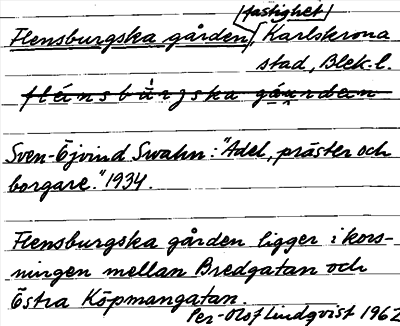 fastighet
Flensburgska gården, Karlskrona
stad, Blek. l.
flänsbùrjska gå̀ṷrdan
Sven-Öjvind Swahn: "Adel, präster och
borgare." 1934.
Flensburgska gården ligger i kors-
ningen mellan Bredgatan och
Östra Köpmangatan.
Per-Olof Lindqvist 1962